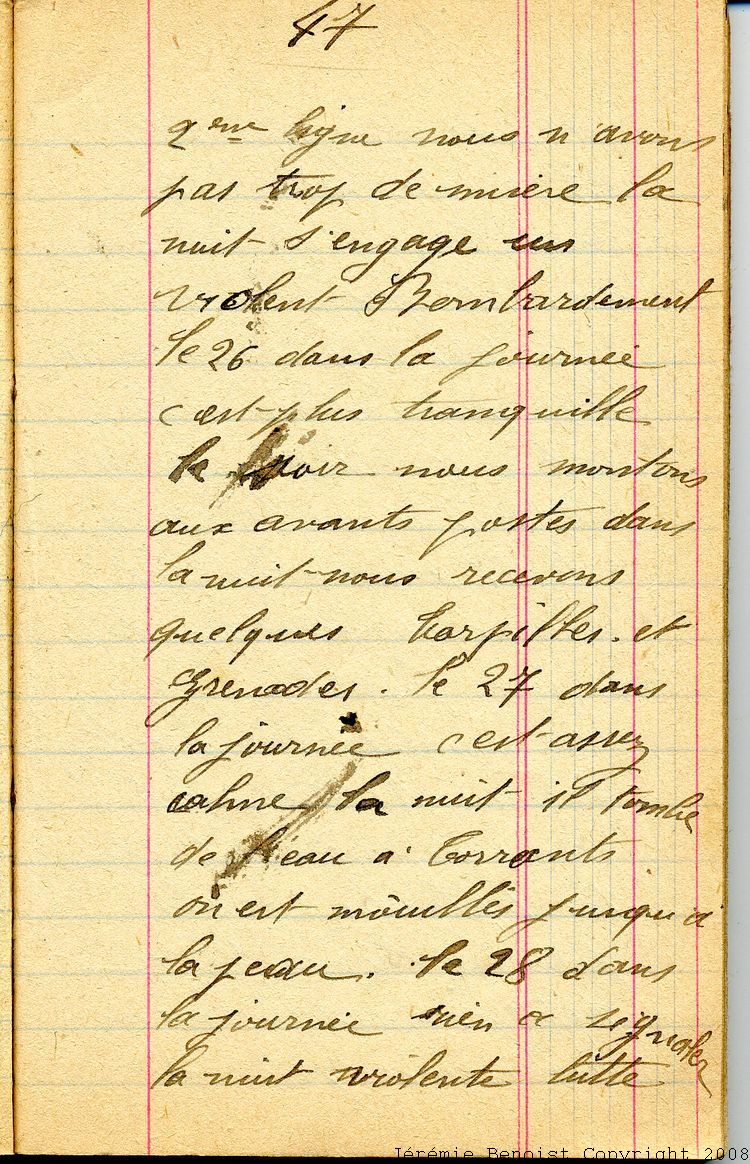 47
2eme ligne nous n'avons
pas trop de misère la
nuit s'engage un
violent Bombardement
le 26 dans la journée
c'est plus tranquille
le soir nous montons
aux avants postes dans
la nuit nous recevons
quelques torpilles et
Grenades. le 27 dans
la journée c'est assez
calme la nuit il tombe
de l'eau a torrants
on est mouillés jusqu'a
la peau. le 28 dans
la journée rien a signaler
la nuit violente lutte
Jérémie Benoist Copyright 2008